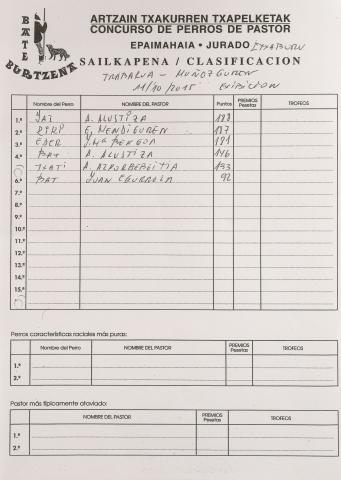 BATE
BURTZENA
ARTZAIN TXAKURREN TXAPELKETAK
CONCURSO DE PERROS DE PASTOR
EPAIMAHAIA • JURADO
SAILKAPENA / CLASIFICACION
MUÑOZGUREN
11/10/2015 EXIBICION
Nombre del Perro NOMBRE DEL PASTOR Puntos PREMIOS Pesetas TROFEOS
1.º JAI A. ALUSTIZA 188
2.º PIRI E. MENDIGUREN 187
3.º EDER 181
4.º BAT A. ALUSTIZA 146
5.º A. AZPORBEBEITIA 133
6.º BAT JUAN EGURROLA 92
7.º
8.º
9.º
10.º
11.º
12.º
13.º
14.º
15.º
Perros características raciales más puras:
Nombre del Perro NOMBRE DEL PASTOR PREMIOS Pesetas TROFEOS
1.º
2.º
Pastor más típicamente ataviado:
NOMBRE DEL PASTOR PREMIOS Pesetas TROFEOS
1.º
2.º